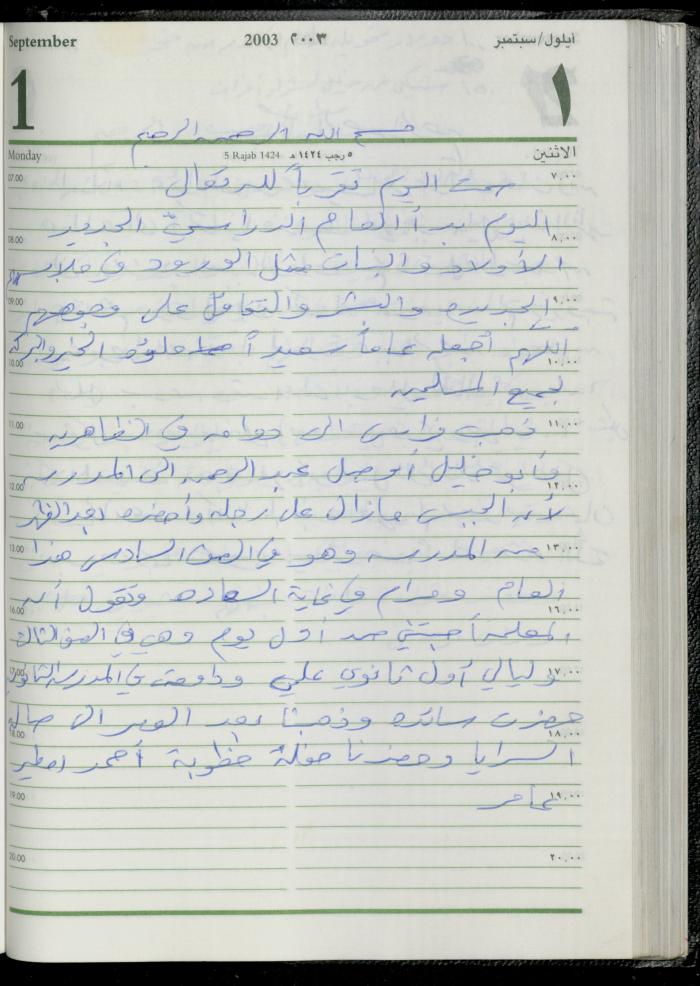 September 2003 ٢٠٠٣ أيلول/سبتمبر
1 ١
بسم الله الرحمن الرحيم
Monday 5 Rajab 1424 ٥ رجب ١٤٢٤ هـ الاثنين
07.00 صمت اليوم تقرباً لله تعالى ٧,٠٠
اليوم بدأ العام الدراسيّ الجديد
08.00 الأولاد والبنات مثل الورود في ملابسهم ٨,٠٠
09.00 الجديده والبشر والتفاؤل على وجوههم ٩,٠٠
اللهم أجعله عاماً سعيداً مملوء الخير والبركة
10.00 لجميع المسلمين ١٠,٠٠
11.00 ذهب فراس الى دوامه في الظاهريه ١١,٠٠
وأبو خليل أوصل عبد الرحمن الى المدرسه
12.00 لأن الجبس مازال على رجله وأحضره بعد الظهر ١٢,٠٠
13.00 من المدرسه وهو في الصف السادس هذا ١٣,٠٠
العام ومرام في غاية السعاده وتقول أن
16.00 المعلمه أحبتني من أول يوم وهي في الصف الثالث ١٦,٠٠
17.00 وليالي أول ثانوي علمي ودامت في المدرسه الثانويه ١٧,٠٠
حضرت سائده وذهبنا بعد العصر الى صاله
18.00 السرايا وحضرنا حفلة خطوبة أحمد ١٨,٠٠
19.00 ١٩,٠٠
20.00 ٢٠,٠٠